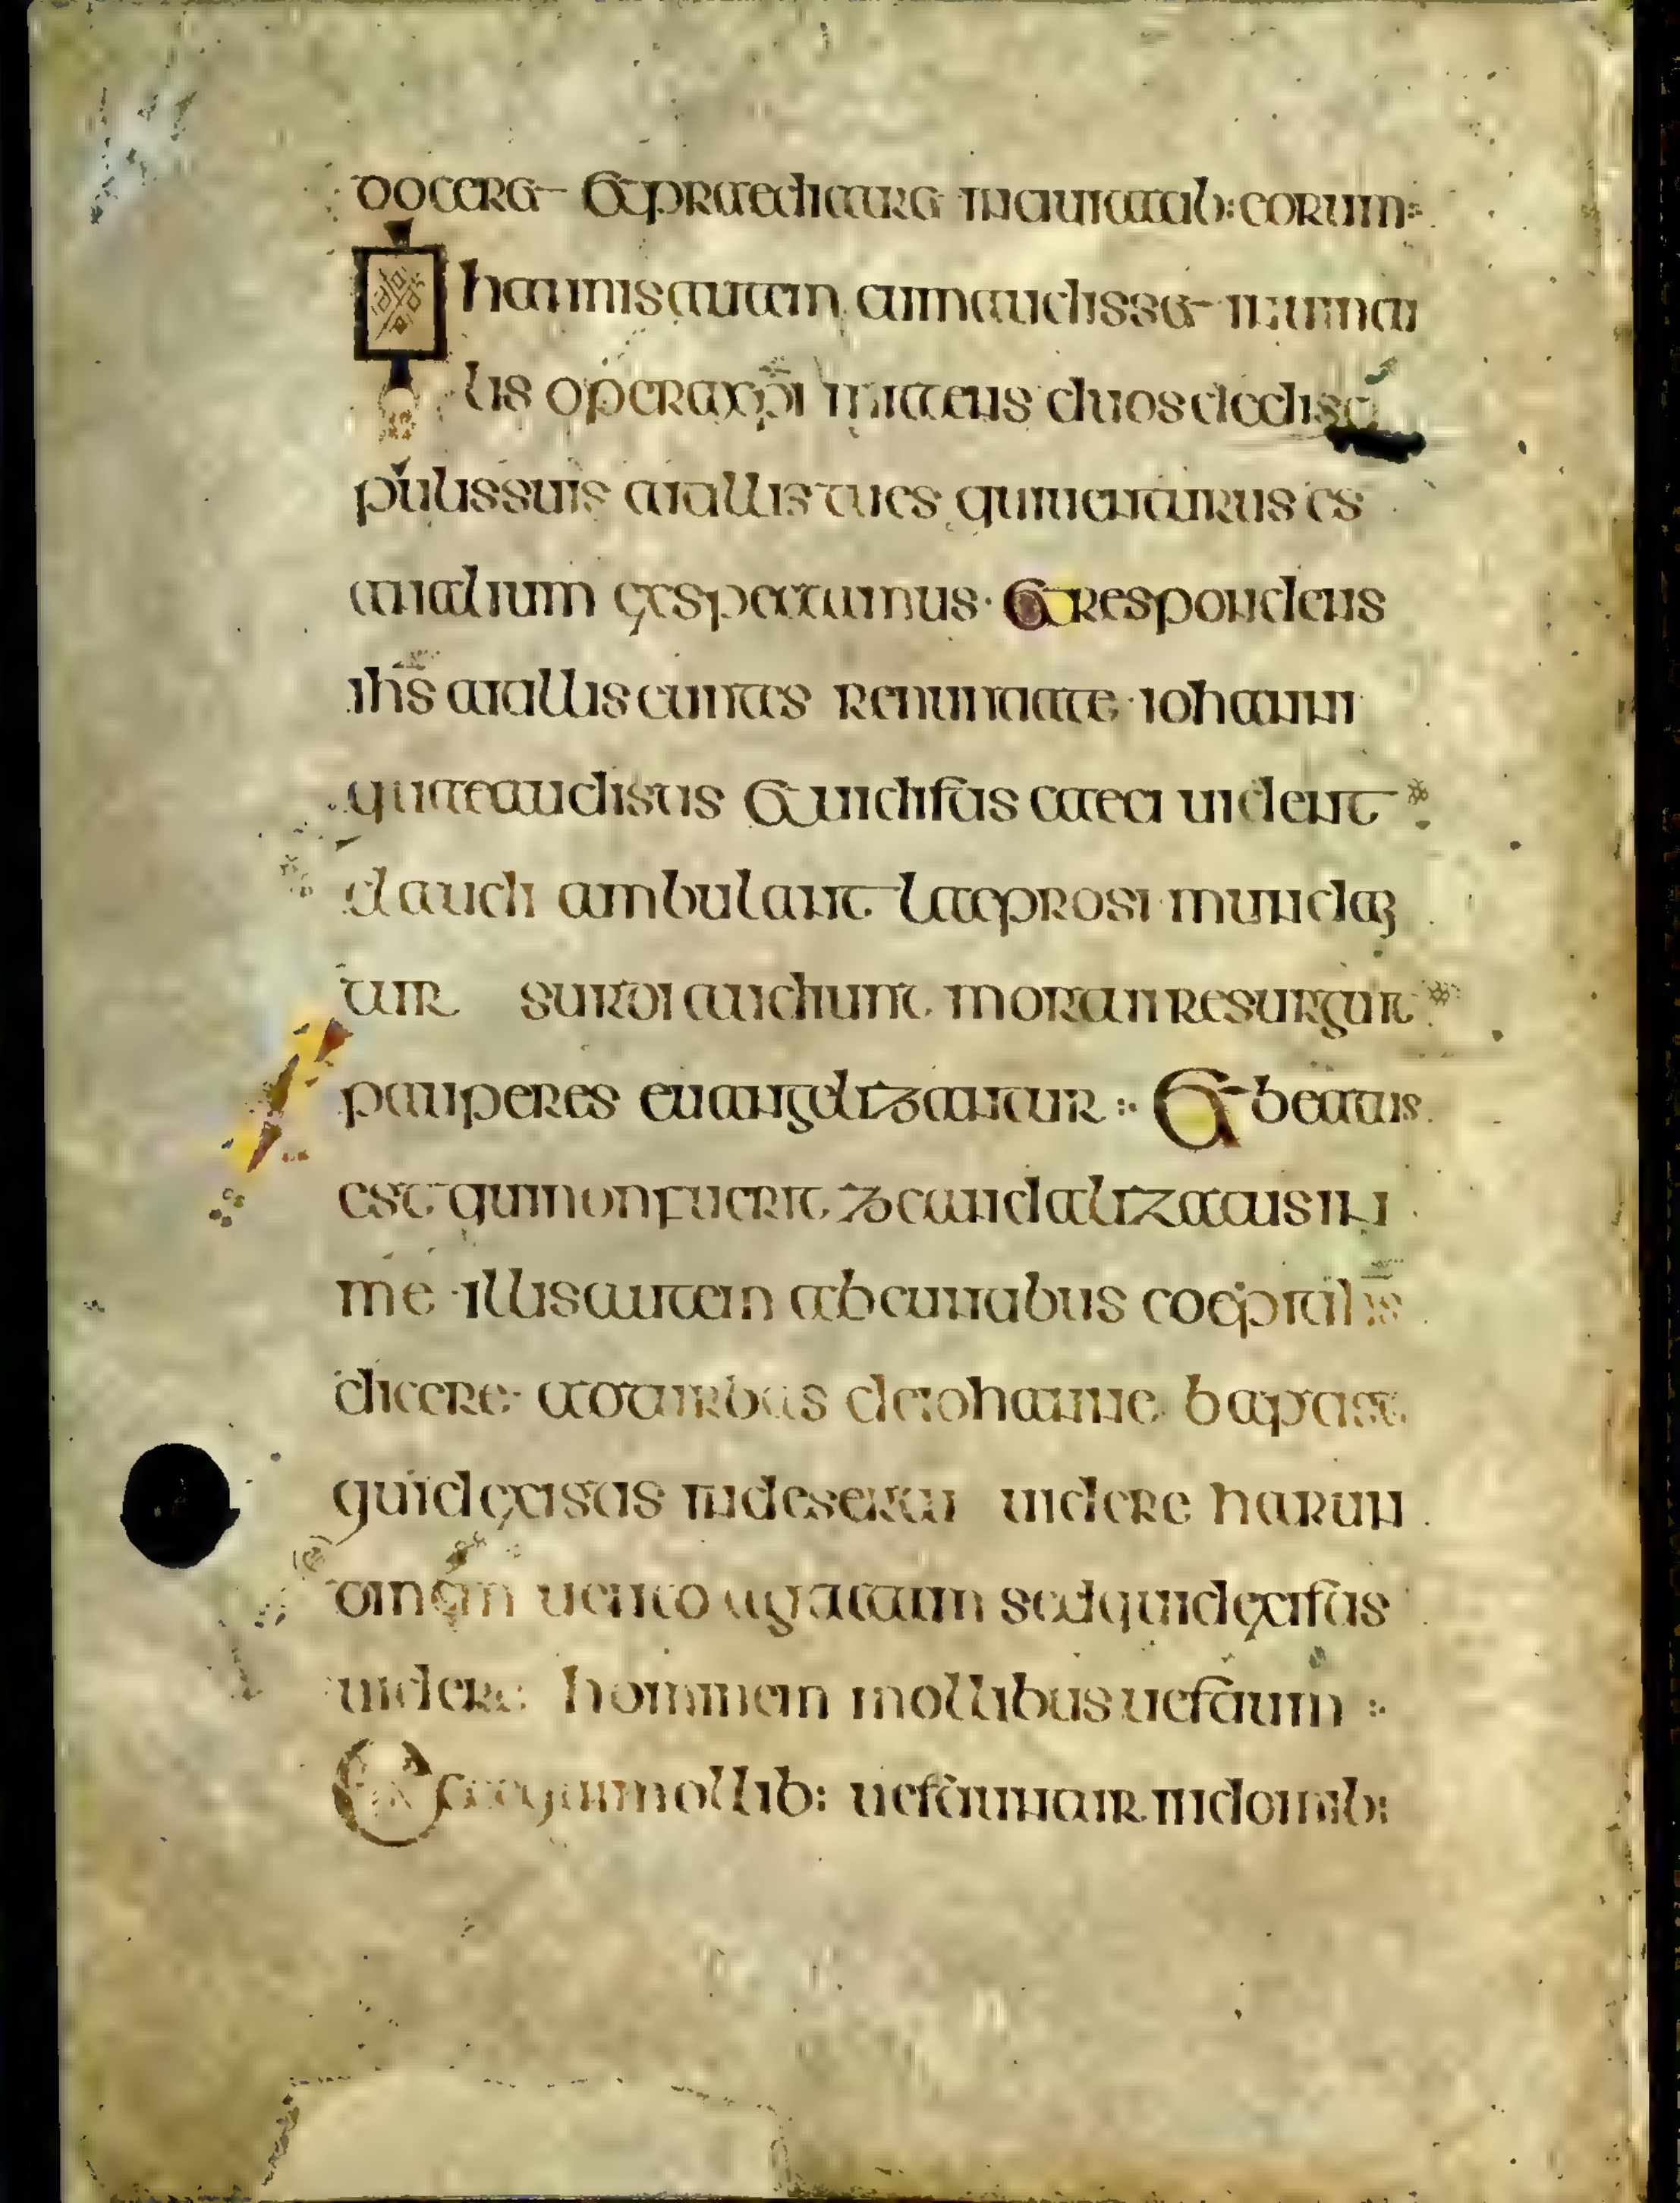 doceret et praedicaret in ciuitatib: eorum:
Iohannis autem cum audisset in uincu
lis opera xpi mittens duos de disci
pulis suis ait illis tu es qui uenturus es
an alium exspectamus · et respondens
ihs ait illis euntes renuntiate · iohanni
quae audistis et uidistis caeci uident
claudi ambulant laeprosi mundan
tur surdi audiunt mortui resurgunt
pauperes euangelizantur :· Et beatus
est qui non fuerit scandalizatus in
me · illis autem abeuntibus coepit ihs
dicere · ad turbas de iohanne baptist
quid existis in deserto uidere harun
dinem uento agitatam sed quid existis
uidere hominem mollibus uestitum :·
Ecce qui mollib: uestiuntur in domib: